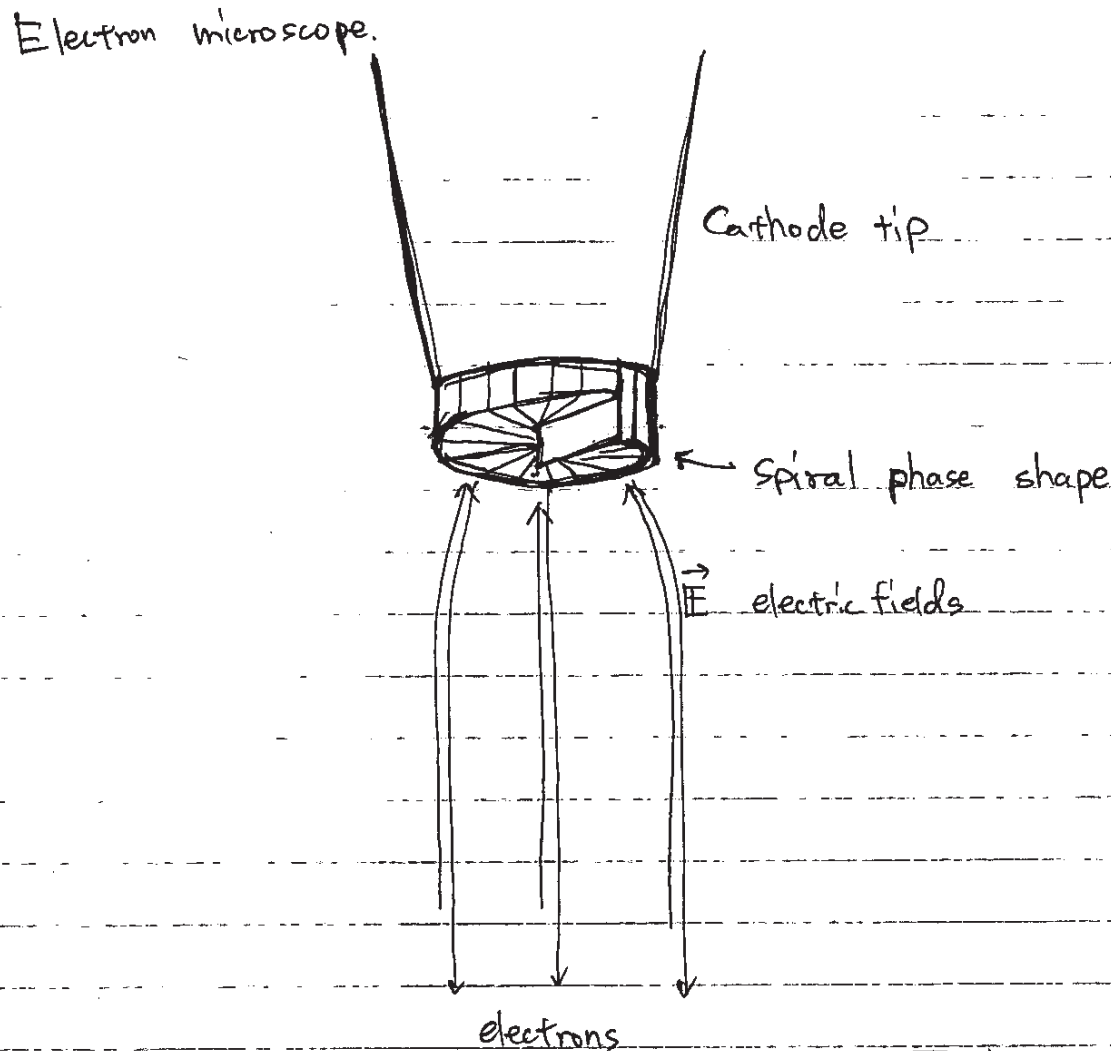 Electron microscope.
Cathode tip
Spiral phase shape
E electric fields
electrons